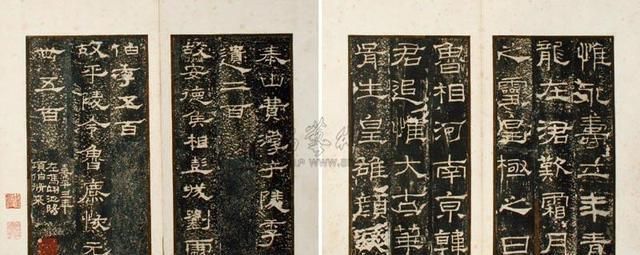 惟永壽二年青
龍在涒歎霜月
之靈皇極之日
魯相河南京韓
君追惟大古華
胥生皇雄顏
泰山費淳于隣季
遺二百
故安德侯相彭城劉
伯存五百
故平陵令魯麃恢元
世五百
熹平三年
左馮翊池陽
項伯脩來